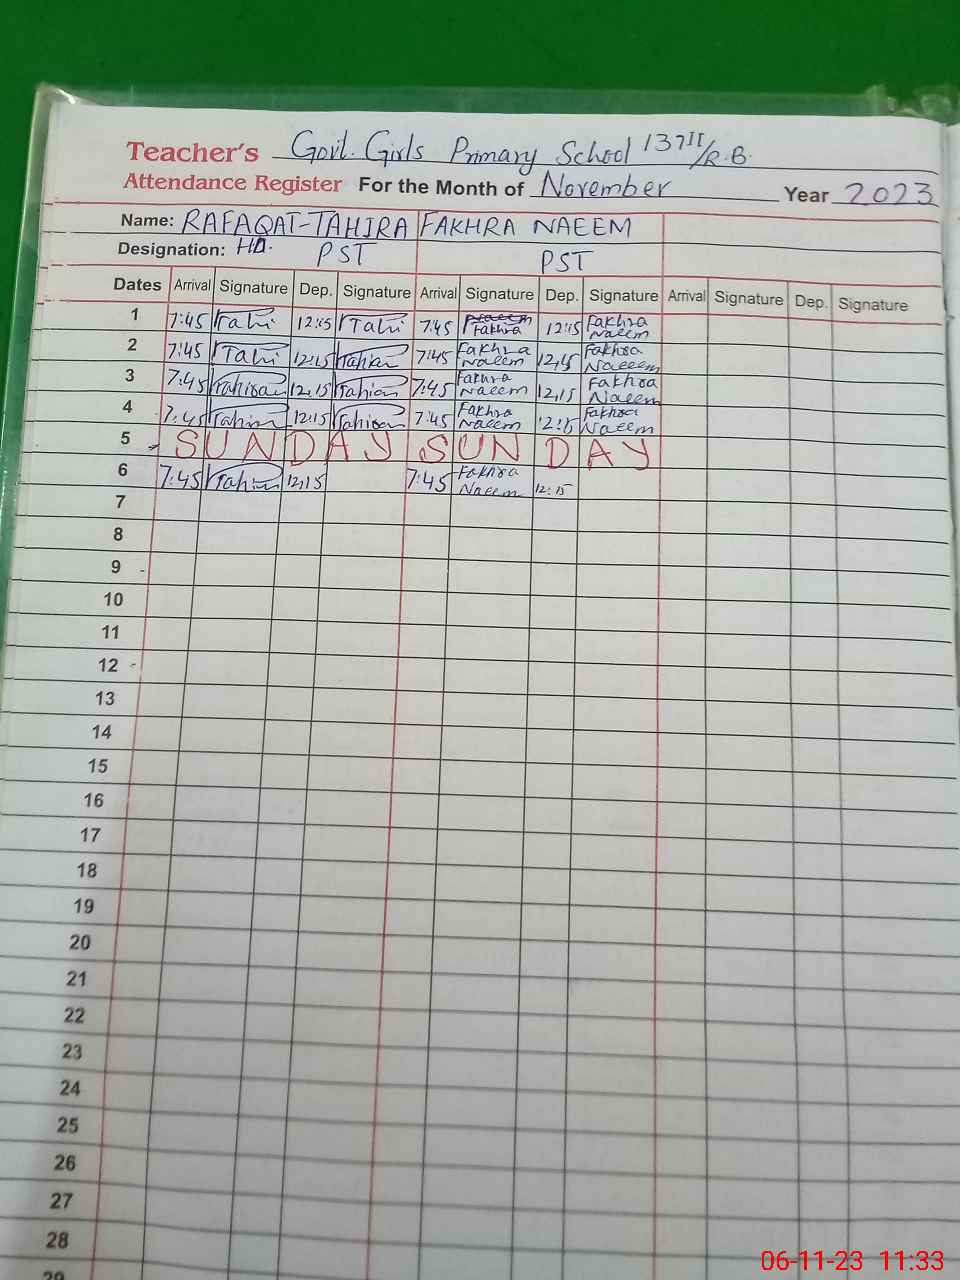 Teacher's Govt. Girls Primary School 137II/R.B.
Attendance Register For the Month of November Year 2023
Name: RAFAQAT-TAHIRA FAKHRA NAEEM
Designation: HD. PST PST
Dates Arrival Signature Dep. Signature Arrival Signature Dep. Signature Arrival Signature Dep. Signature
1 7:45 Tahi 12:15 Tahi 7:45 Fakhra 12:15 Fakhra Naeem
2 7:45 Tahi 12:15 7:45 Fakhra Naeem 12,15 Fakhra Naeem
3 7:45 12,15 7:45 Fakhra Naeem 12,15 Fakhra Naeem
4 7:45 12:15 7:45 Fakhra Naeem 12:15 Fakhra Naeem
5 SUNDAY SUNDAY
6 7:45 12,15 7:45 Fakhra Naeem 12:15
7
8
9
10
11
12
13
14
15
16
17
18
19
20
21
22
23
24
25
26
27
28
29
06-11-23 11:33